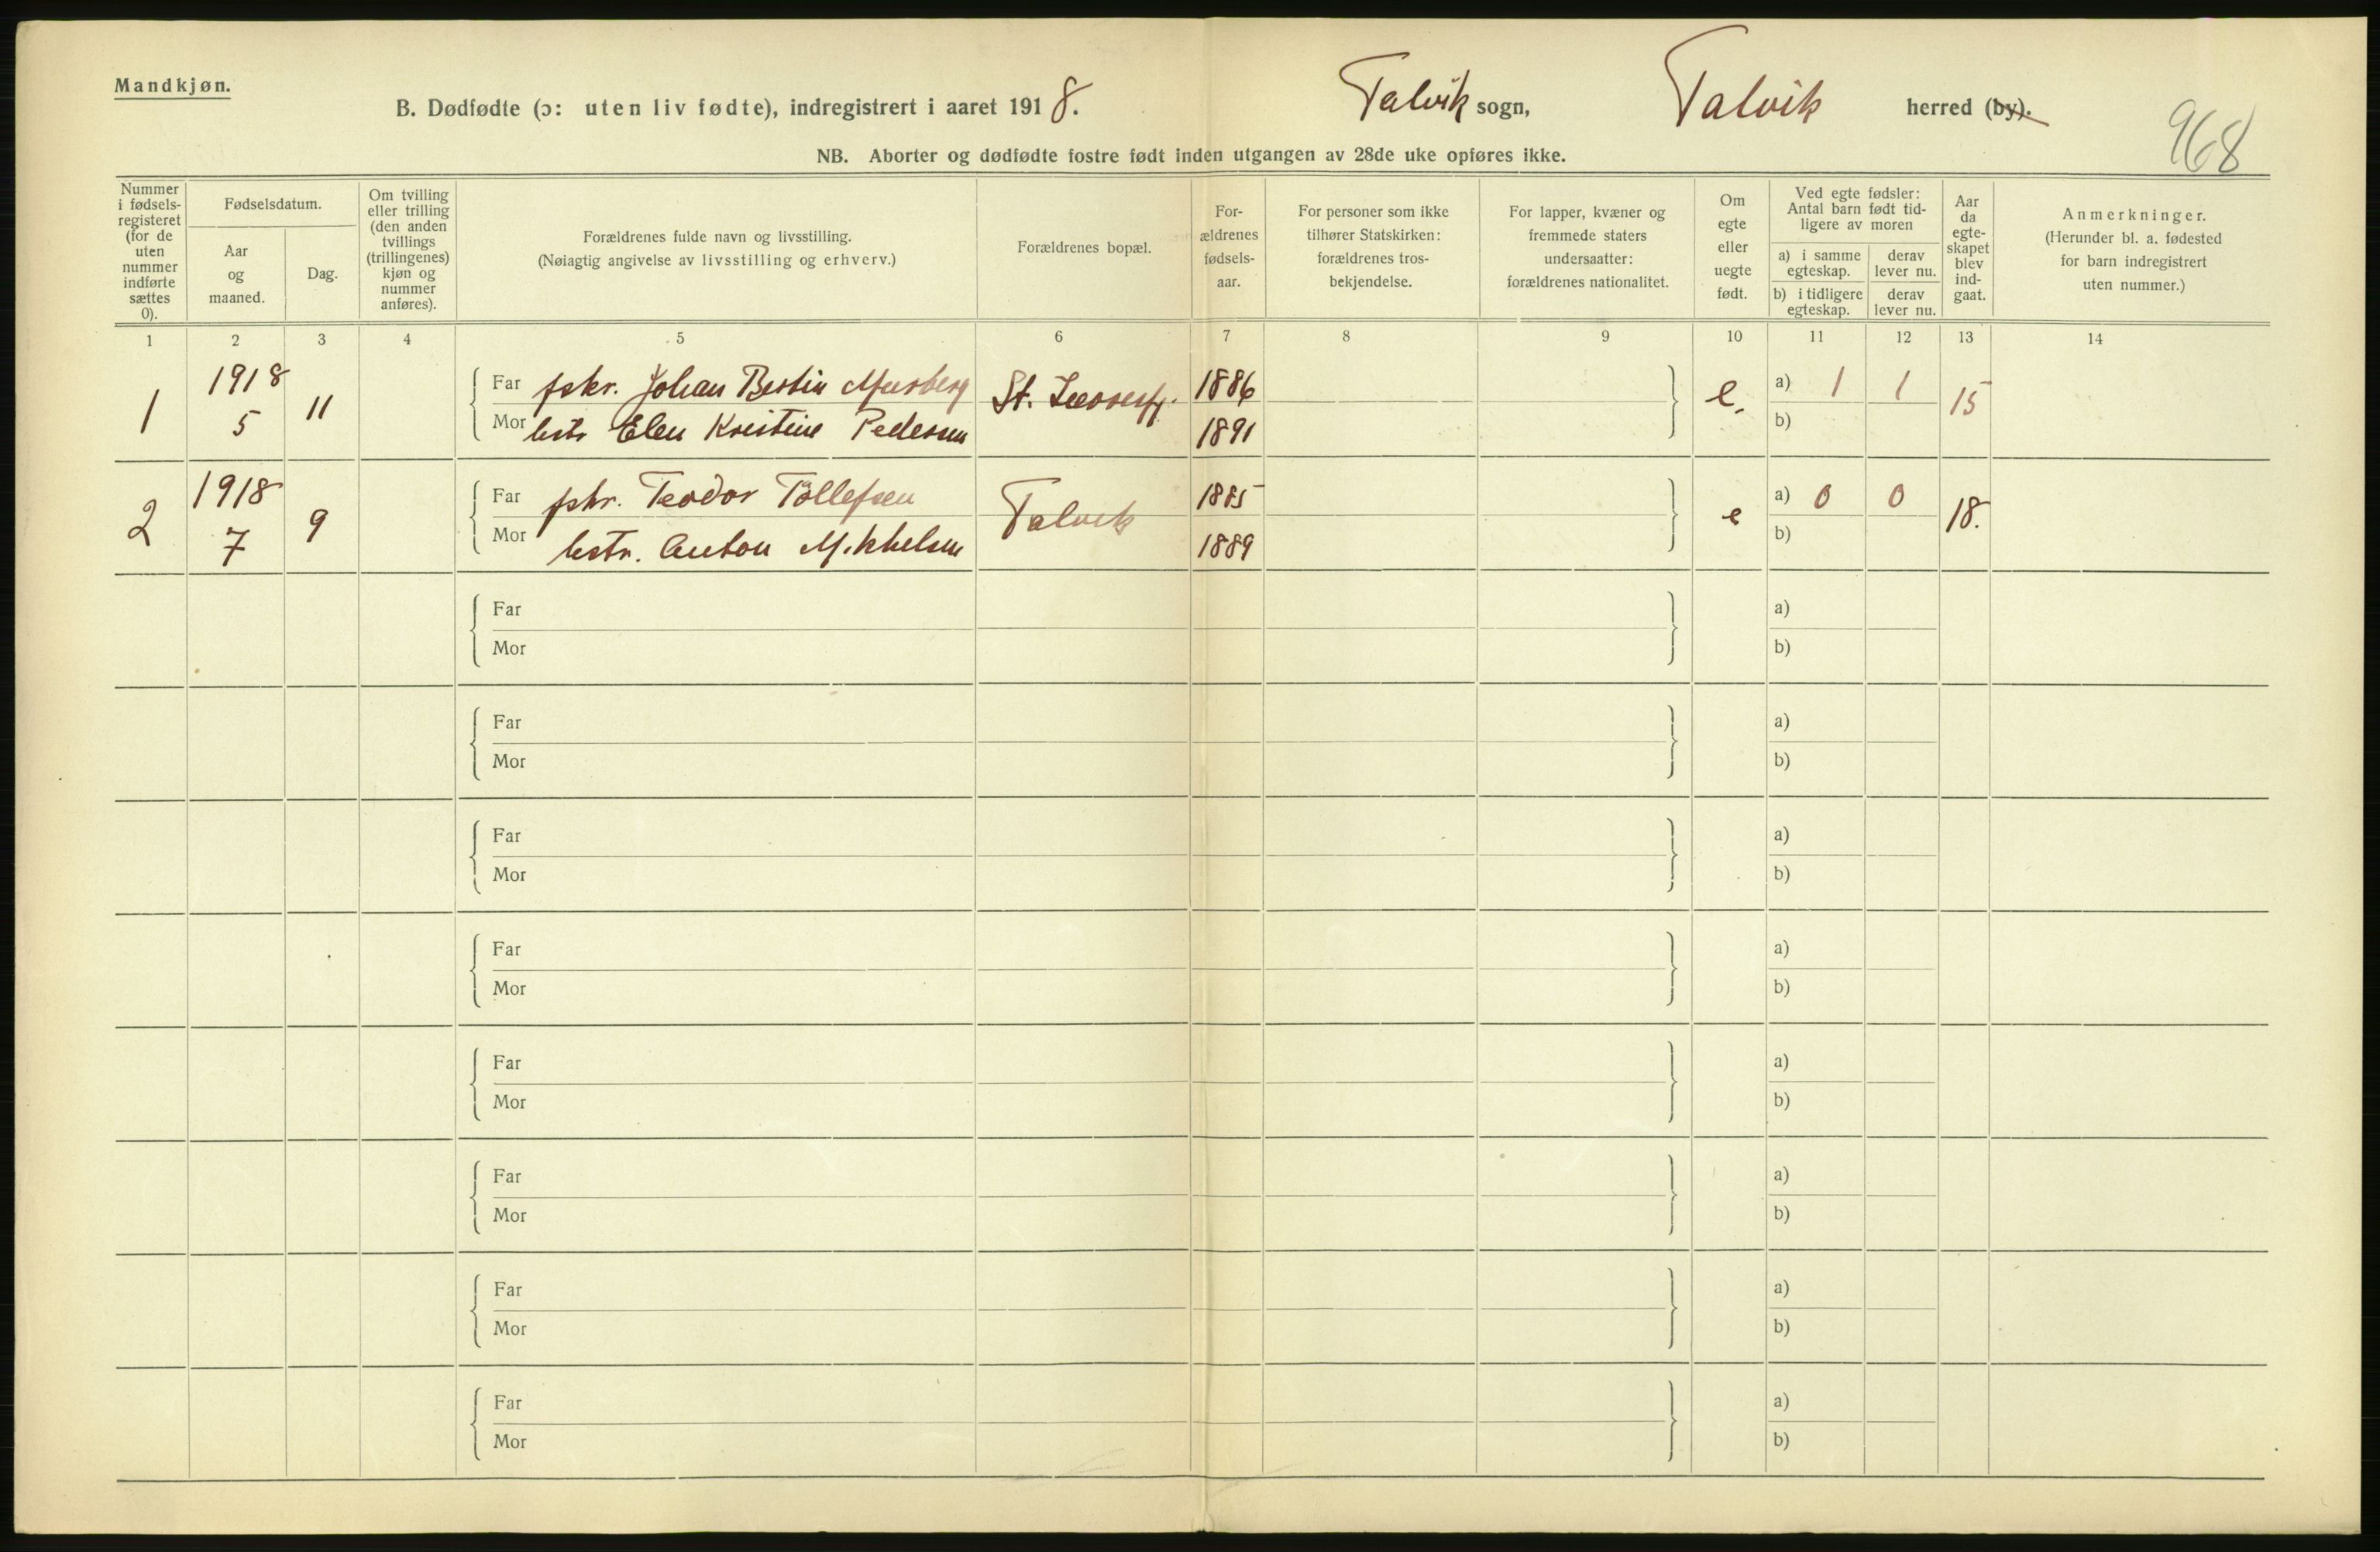 Mandkjøn.
B. Dødfødte (ɔ: uten liv fødte), indregistrert i aaret 1918.
Talvik sogn, Talvik herred (by).
968
NB. Aborter og dødfødte fostre født inden utgangen av 28de uke opføres ikke.
Nummer i fødsels-registeret (for de uten nummer indførte sættes 0).
Fødselsdatum.
Aar og maaned.
Dag.
Om tvilling eller trilling (den anden tvillings (trillingenes) kjøn og nummer anføres).
Forældrenes fulde navn og livsstilling.
(Nøiagtig angivelse av livsstilling og erhverv.)
Forældrenes bopæl.
For-ældrenes fødsels-aar.
For personer som ikke tilhører Statskirken: forældrenes tros-bekjendelse.
For lapper, kvæner og fremmede staters undersaatter: forældrenes nationalitet.
Om egte eller uegte født.
Ved egte fødsler: Antal barn født tid-ligere av moren
a) i samme egteskap.
derav lever nu.
b) i tidligere egteskap.
derav lever nu.
Aar da egte-skapet blev ind-gaat.
Anmerkninger.
(Herunder bl. a. fødested for barn indregistrert uten nummer.)
1 2 3 4 5 6 7 8 9 10 11 12 13 14
1 1918 5 11 Far fskr. Johan Bertin St. 1886 e. a) 1 1 15
Mor hstr Elen Kristine Pedersen 1891 b)
2 1918 7 9 Far fskr. Teodor Tollefsen Talvik 1885 e a) 0 0 18.
Mor hstr. Anton Mikkelsen 1889 b)
Far a)
Mor b)
Far a)
Mor b)
Far a)
Mor b)
Far a)
Mor b)
Far a)
Mor b)
Far a)
Mor b)
Far a)
Mor b)
Far a)
Mor b)